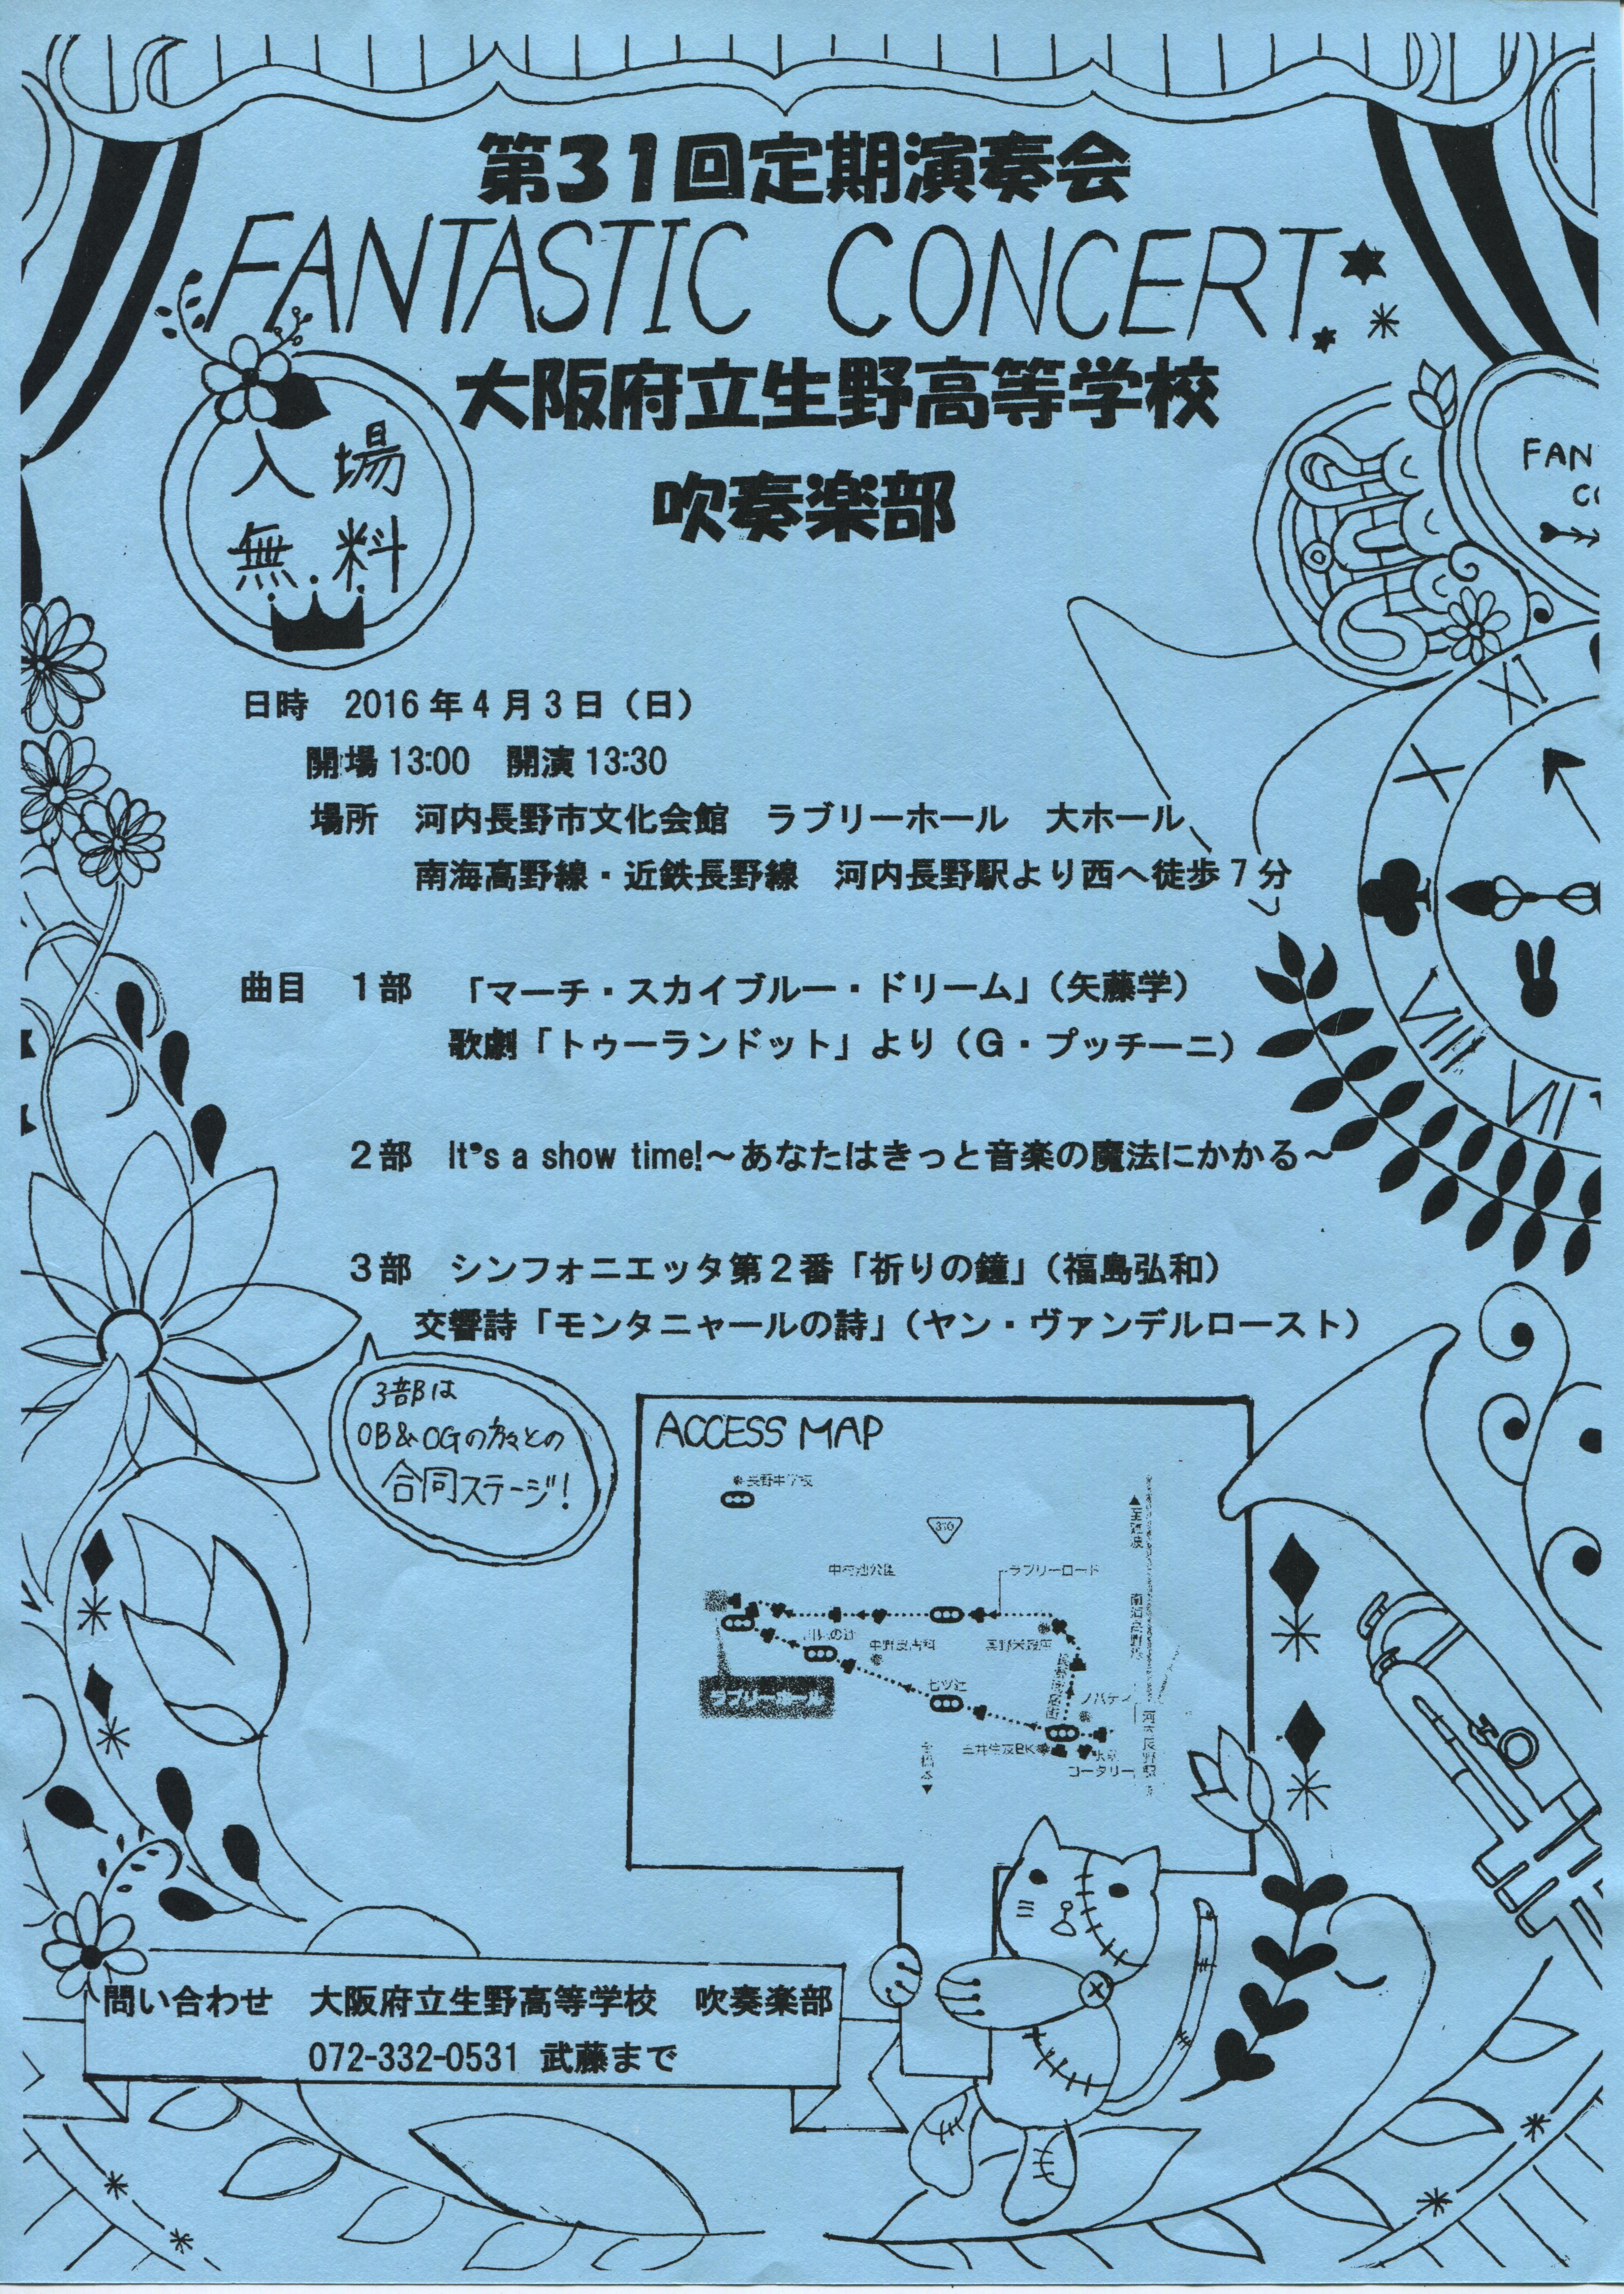 第31回定期演奏会
FANTASTIC CONCERT
大阪府立生野高等学校
吹奏楽部
入場
無料
FAN
日時　2016年4月3日（日）
開場13:00　開演13:30
場所　河内長野市文化会館　ラブリーホール　大ホール
南海高野線・近鉄長野線　河内長野駅より西へ徒歩7分
曲目　1部　「マーチ・スカイブルー・ドリーム」（矢藤学）
歌劇「トゥーランドット」より（G・プッチーニ）
2部　It's a show time!～あなたはきっと音楽の魔法にかかる～
3部　シンフォニエッタ第2番「祈りの鐘」（福島弘和）
交響詩「モンタニャールの詩」（ヤン・ヴァンデルロースト）
3部は
OB&OGの方々との
合同ステージ!
ACCESS MAP
長野中学校
310
至難波
中村池公園
ラブリーロード
南海高野線
中野皮膚科
ラブリーホール
七ツ辻
ノバティ
河内長野駅
三井住友BK
ロータリー
至橋本
XI
X
VIII
VII
問い合わせ　大阪府立生野高等学校　吹奏楽部
072-332-0531 武藤まで